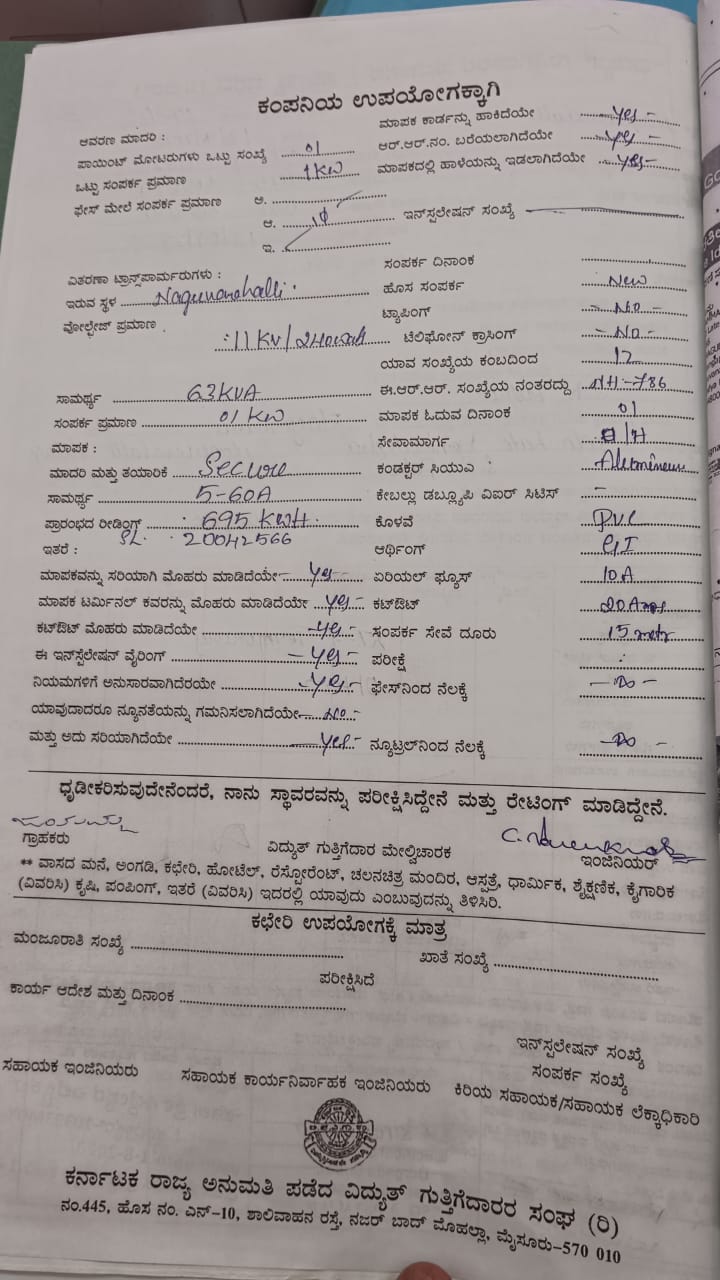 ಕಂಪನಿಯ ಉಪಯೋಗಕ್ಕಾಗಿ
ಆವರಣ ಮಾದರಿ :
ಮಾಪಕ ಕಾರ್ಡನ್ನು ಹಾಕಿದೆಯೇ ......... yes -
ಪಾಯಿಂಟ್ ಮೋಟರುಗಳು ಒಟ್ಟು ಸಂಖ್ಯೆ ......... 01
ಆರ್.ಆರ್.ನಂ. ಬರೆಯಲಾಗಿದೆಯೇ ......... yes -
ಒಟ್ಟು ಸಂಪರ್ಕ ಪ್ರಮಾಣ ......... 1 KW
ಮಾಪಕದಲ್ಲಿ ಹಾಳೆಯನ್ನು ಇಡಲಾಗಿದೆಯೇ ...... yes -
ಫೇಸ್ ಮೇಲೆ ಸಂಪರ್ಕ ಪ್ರಮಾಣ ಅ. .........
ಆ. ......... 1φ ......... ಇನ್‌ಸ್ಪಲೇಷನ್ ಸಂಖ್ಯೆ .........
ಇ. .........
ವಿತರಣಾ ಟ್ರಾನ್ಸ್‌ಪಾರ್ಮರುಗಳು :
ಸಂಪರ್ಕ ದಿನಾಂಕ .........
ಇರುವ ಸ್ಥಳ ......... Nagunanahalli
ಹೊಸ ಸಂಪರ್ಕ ......... New
ವೋಲ್ಟೇಜ್ ಪ್ರಮಾಣ
ಟ್ಯಾಪಿಂಗ್ ......... - No -
: 11 KV/240 volt ......... ಟೆಲಿಫೋನ್ ಕ್ರಾಸಿಂಗ್ ......... - No -
ಯಾವ ಸಂಖ್ಯೆಯ ಕಂಬದಿಂದ ......... 12
ಸಾಮರ್ಥ್ಯ ......... 63 KVA ......... ಈ.ಆರ್.ಆರ್. ಸಂಖ್ಯೆಯ ನಂತರದ್ದು ......... NH - 786
ಸಂಪರ್ಕ ಪ್ರಮಾಣ ......... 01 KW ......... ಮಾಪಕ ಓದುವ ದಿನಾಂಕ ......... 01
ಮಾಪಕ :
ಸೇವಾಮಾರ್ಗ ......... O/H
ಮಾದರಿ ಮತ್ತು ತಯಾರಿಕೆ ......... Secure ......... ಕಂಡಕ್ಟರ್ ಸಿಯುಎ ......... Aluminium
ಸಾಮರ್ಥ್ಯ ......... 5-60A ......... ಕೇಬಲ್ಲು ಡಬ್ಲ್ಯೂಪಿ ವಿಐರ್ ಸಿಟಿಸ್ ......... -
ಪ್ರಾರಂಭದ ರೀಡಿಂಗ್ಸ್ ......... 695 KWH. ......... ಕೊಳವೆ ......... PVC
SL. : 20042566
ಇತರೆ :
ಆರ್ಥಿಂಗ್ ......... GI
ಮಾಪಕವನ್ನು ಸರಿಯಾಗಿ ಮೊಹರು ಮಾಡಿದೆಯೇ ......... yes - ......... ಏರಿಯಲ್ ಫ್ಯೂಸ್ ......... 10A
ಮಾಪಕ ಟರ್ಮಿನಲ್ ಕವರನ್ನು ಮೊಹರು ಮಾಡಿದೆಯೇ ... yes - ...... ಕಟ್‌ಔಟ್ ......... 20 Amps
ಕಟ್‌ಔಟ್ ಮೊಹರು ಮಾಡಿದೆಯೇ ......... - yes - ...... ಸಂಪರ್ಕ ಸೇವೆ ದೂರು ......... 15 metr
ಈ ಇನ್‌ಸ್ಪೆಲೇಷನ್ ವೈರಿಂಗ್ ......... - yes - ...... ಪರೀಕ್ಷೆ ......... :
ನಿಯಮಗಳಿಗೆ ಅನುಸಾರವಾಗಿದೆರಯೇ ......... - yes - ...... ಫೇಸ್‌ನಿಂದ ನೆಲಕ್ಕೆ ......... - Do -
ಯಾವುದಾದರೂ ನ್ಯೂನತೆಯನ್ನು ಗಮನಿಸಲಾಗಿದೆಯೇ ...... No -
ಮತ್ತು ಅದು ಸರಿಯಾಗಿದೆಯೇ ......... yes - ...... ನ್ಯೂಟ್ರಲ್‌ನಿಂದ ನೆಲಕ್ಕೆ ......... - Do -
ಧೃಡೀಕರಿಸುವುದೇನೆಂದರೆ, ನಾನು ಸ್ಥಾವರವನ್ನು ಪರೀಕ್ಷಿಸಿದ್ದೇನೆ ಮತ್ತು ರೇಟಿಂಗ್ ಮಾಡಿದ್ದೇನೆ.
ಗ್ರಾಹಕರು ವಿದ್ಯುತ್ ಗುತ್ತಿಗೆದಾರ ಮೇಲ್ವಿಚಾರಕ ಇಂಜಿನಿಯರ್
** ವಾಸದ ಮನೆ, ಅಂಗಡಿ, ಕಛೇರಿ, ಹೋಟೆಲ್, ರೆಸ್ಟೋರೆಂಟ್, ಚಲನಚಿತ್ರ ಮಂದಿರ, ಆಸ್ಪತ್ರೆ, ಧಾರ್ಮಿಕ, ಶೈಕ್ಷಣಿಕ, ಕೈಗಾರಿಕ
(ವಿವರಿಸಿ) ಕೃಷಿ, ಪಂಪಿಂಗ್, ಇತರೆ (ವಿವರಿಸಿ) ಇದರಲ್ಲಿ ಯಾವುದು ಎಂಬುವುದನ್ನು ತಿಳಿಸಿರಿ.
ಕಛೇರಿ ಉಪಯೋಗಕ್ಕೆ ಮಾತ್ರ
ಮಂಜೂರಾತಿ ಸಂಖ್ಯೆ ......... ಖಾತೆ ಸಂಖ್ಯೆ .........
ಪರೀಕ್ಷಿಸಿದೆ
ಕಾರ್ಯ ಆದೇಶ ಮತ್ತು ದಿನಾಂಕ .........
ಇನ್‌ಸ್ಪಲೇಷನ್ ಸಂಖ್ಯೆ
ಸಂಪರ್ಕ ಸಂಖ್ಯೆ
ಸಹಾಯಕ ಇಂಜಿನಿಯರು ಸಹಾಯಕ ಕಾರ್ಯನಿರ್ವಾಹಕ ಇಂಜಿನಿಯರು ಕಿರಿಯ ಸಹಾಯಕ/ಸಹಾಯಕ ಲೆಕ್ಕಾಧಿಕಾರಿ
ಕರ್ನಾಟಕ ರಾಜ್ಯ ಅನುಮತಿ ಪಡೆದ ವಿದ್ಯುತ್ ಗುತ್ತಿಗೆದಾರರ ಸಂಘ (ರಿ)
ನಂ.445, ಹೊಸ ನಂ. ಎನ್-10, ಶಾಲಿವಾಹನ ರಸ್ತೆ, ನಜರ್ ಬಾದ್ ಮೊಹಲ್ಲಾ, ಮೈಸೂರು-570 010